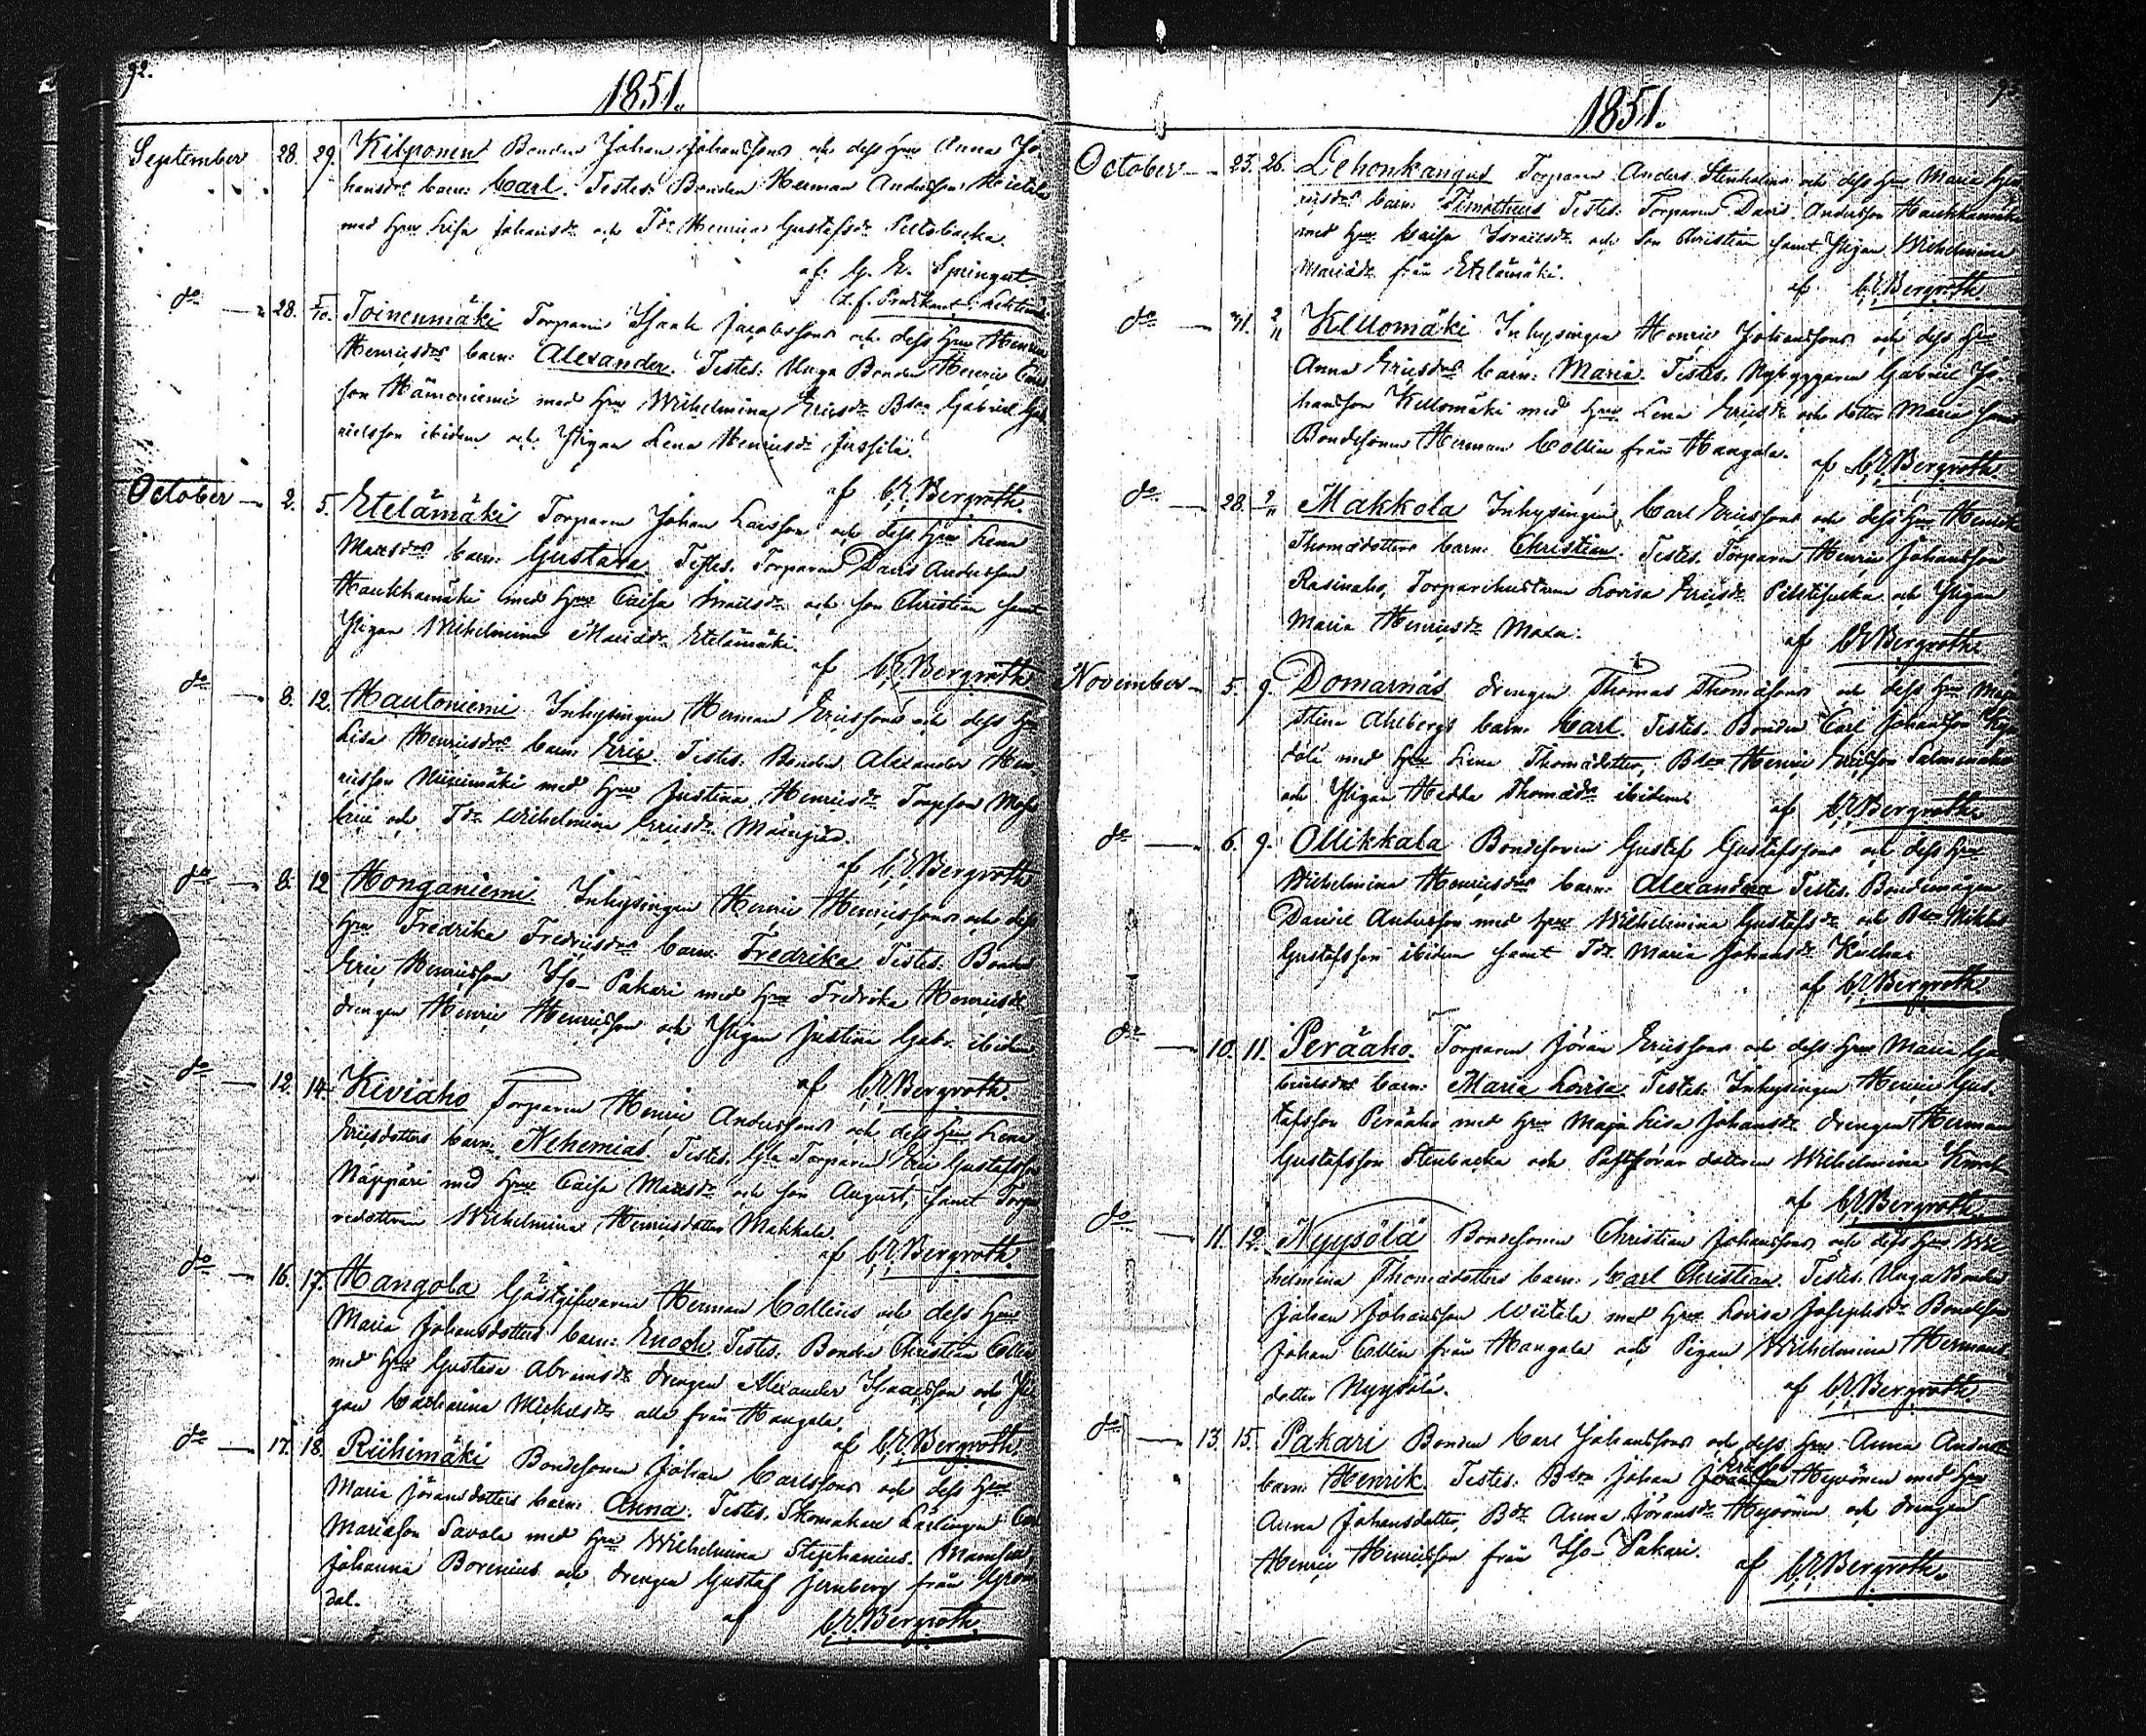 92.
1851.
September 28. 29. Kilponen Bonden Johan Johanssons och dess Hru Anna Jo-
hansdrs barn: Carl. Testes: Bonden Herman Andersson Hietala
med Hru Lisa Johansdr och Tdr Henrica Gustafsdr Peltobacka.
af G. E. Springert
t.f. Predikant i Lehtimäki
do 28. 5/10. Toinenmäki Torparen Isaak Jacobssons och dess Hru Henrica
Henricsdrs barn: Alexander. Testes: Unga Bonden Henric Carls-
son Hämeniemi med Hru Wilhelmina Ericsdr Bson Gabriel Gab-
rielsson ibidem och Pigan Lena Henricsdr Jussila.
af C.E. Bergroth.
October 2. 5. Etelämäki Torparen Johan Larsson och dess Hru Lena
Matsdrs barn: Gustava. Testes: Torparen David Andersson
Haukkamäki med Hru Caisa Israelsdr och son Christian samt
Pigan Wilhelmina Mariädr Etelämäki.
af C.E. Bergroth
do 8. 12. Hautoniemi Inhysingen Herman Ericssons och dess Hru
Lisa Henricsdrs barn: Eric. Testes: Bonden Alexander Hen-
ricsson Niinimäki med Hru Justina Henricsdr Torpson Mats
Eric och Tdr Wilhelmina Ericsdr
af C.E. Bergroth
do 8. 12 Honganiemi Inhysingen Henric Henricssons och dess
Hru Fredrika Fredricsdrs barn: Fredrika Testes: Bonden
Eric Henricsson Iso-Pakari med Hru Fredrika Henricsdr
drengen Henric Henricsson och Pigan Justina Gabr. ibidem
af C.E. Bergroth.
do 12. 14. Kiviaho Torparen Henric Anderssons och dess Hru Lena
Ericsdotters barn: Nehemias. Testes: Gla Torparen Eric Gustafsson
Näppäri med Hru Caisa Matsdr och son August, samt Torpa-
redottren Wilhelmina Henricsdotter Makkola.
af C.E. Bergroth.
do 16. 17. Hangola Gästgifvaren Herman Collins och dess Hru
Maria Johansdotters barn: Enoch. Testes: Bonden Christian Collin
med Hru Gustava Abramsdr drengen Alexander Isaacsson och Pi-
gan Catharina Mickelsdr alla från Hangola.
af C.E. Bergroth.
do 17. 18. Riihimäki Bondesonen Johan Carlssons och dess Hru
Maria Jöransdotters barn: Anna. Testes: Skomakare Lärlingen Carl
Mariason Savola med Hru Wilhelmina Stephanius. Mamsell
Johanna Borenius och drengen Gustaf Jernberg från Grön-
dal.
af C.E. Bergroth.
1851.
October 23. 26. Lehonkangas Torparen Anders Stenholms och dess Hru Maria Hen-
ricsdrs barn: Timotheus Testes: Torparen David Andersson Haukkamäki
med Hru Caisa Israelsdr och Son Christian samt Pigan Wilhelmina
Mariädr från Etelämäki.
af C.E. Bergroth.
do 31. 2/11 Kellomäki Inhysingen Henric Johanssons och dess Hru
Anna Ericsdrs barn: Maria. Testes: Nybyggaren Gabriel Jo-
hansson Kellomäki med Hru Lena Ericsdr och dotter Maria samt
Bondesonen Herman Collin från Hangola.
af C.E. Bergroth.
do 28. 2/11 Makkola Inhysingen Carl Ericssons och dess Hru Henrica
Thomædotters barn: Christian. Testes: Torparen Henric Johansson
Rasinaho, Torparehustrun Lovisa Ericsdr och Pigan
Maria Henricsdr Mata.
af C.E. Bergroth
November 5. 9. Domarnäs drengen Thomas Thomassons och dess Hru Maja
Stina Ahlbergs barn: Carl. Testes: Bonden Carl Johansson
med Hru Lena Thomædotter, Bson Henric Ericsson Salmenaho
och Pigan Hedda Thomædr ibidem
af C.E. Bergroth
do 6. 9. Ollikkala Bondesonen Gustaf Gustafssons och dess Hru
Wilhelmina Henricsdrs barn: Alexandra Testes: Bondemågen
Daniel Andersson med Hru Wilhelmina Gustafsdr och Bson Niklas
Gustafsson ibidem samt Tdr Maria Johansdr
af C.E. Bergroth.
do 10. 11. Perääho. Torparen Jöran Ericssons och dess Hru Maria Ga-
brielsdrs barn: Maria Lovisa. Testes: Inhysingen Henric Gus-
tafsson Perääho med Hru Maja Lisa Johansdr drengen Herman
Gustafsson Stenbacka och dottren Wilhelmina
af C.E. Bergroth.
do 11. 12. Nyysölä Bondesonen Christian Johanssons och dess Hru Wil-
helmina Thomædotters barn: Carl Christian. Testes: Unga Bonden
Johan Johansson Wiitala med Hru Lovisa Josephsdr Bondeson
Johan Collin från Hangola och Pigan Wilhelmina Hermans-
dotter Nyysölä.
af C.E. Bergroth
do 13. 15. Pakari Bonden Carl Johanssons och dess Hru Anna Andersdrs
barn: Henrik. Testes: Bson Johan Hyvönen med Hru
Anna Johansdotter, Bdr Anna Jöransdr Hyvönen och drengen
Henric Henricsson från Iso-Pakari.
af C.E. Bergroth.